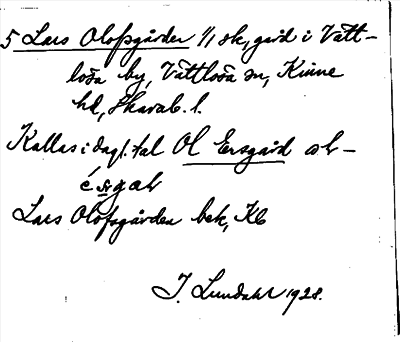 5 Lars Olofsgården 1/1 sk, gård i Vätt-
lösa by, Vättlösa sn, Kinne
hd, Skarab. l.
Kallas i dagl. tal Ol Ersgård
Lars Olofsgården bek, Kb
J. Lundahl 1928.